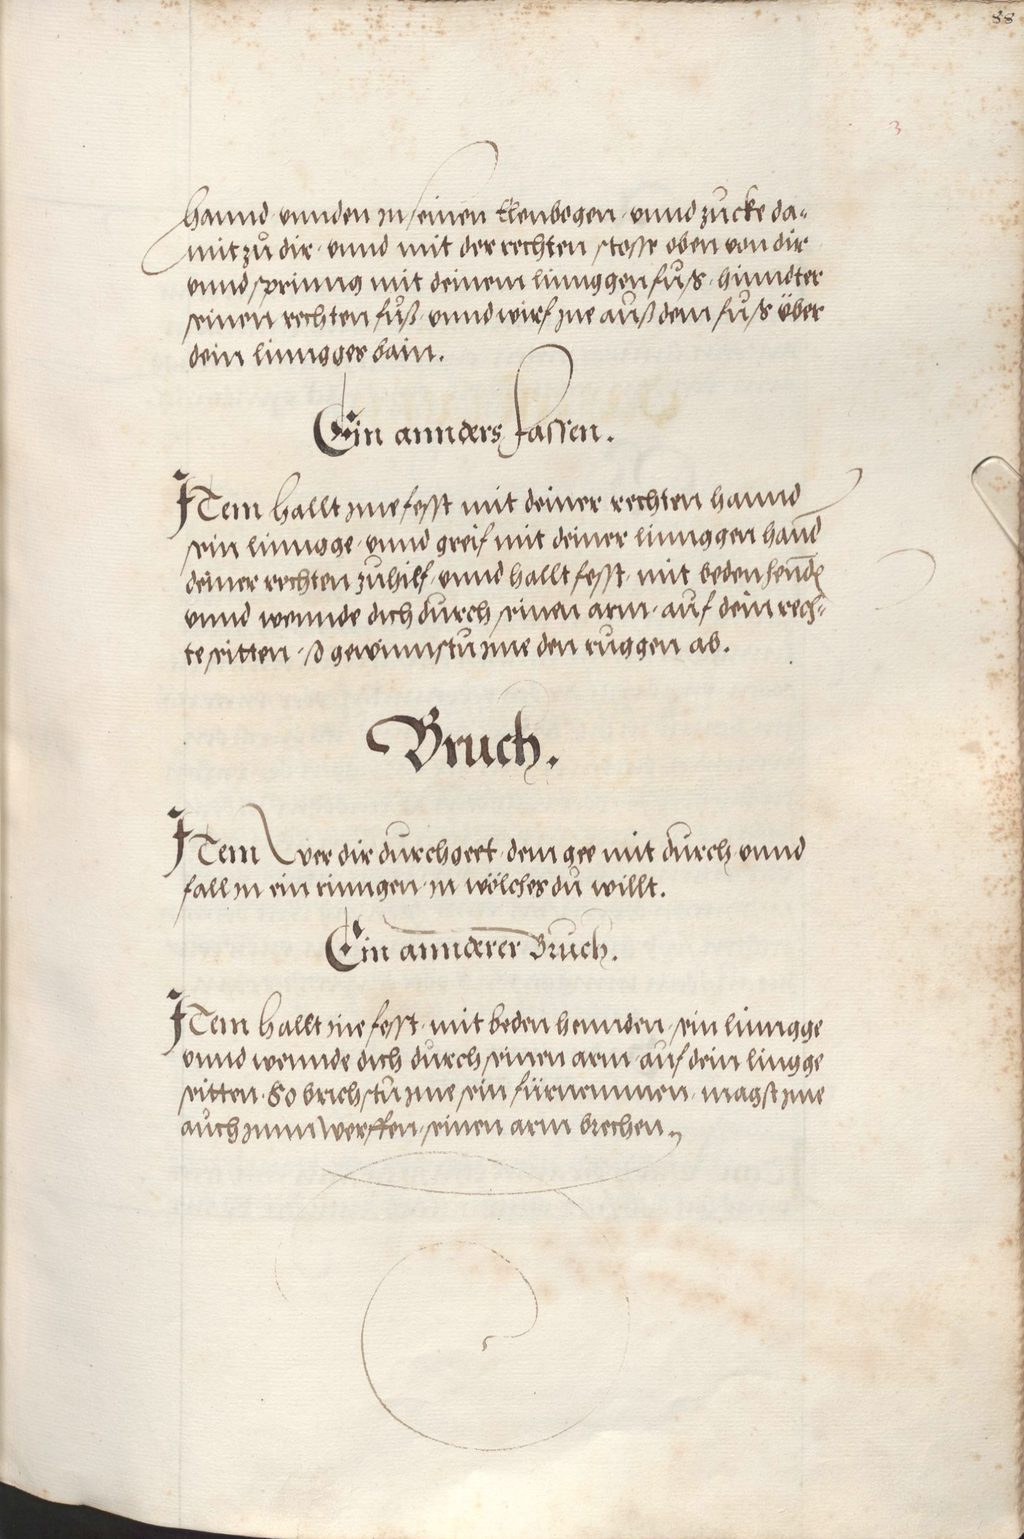 88
3
hannd vnnden in seinen Elenbogen vnnd zucke da=
mit zů dir vnnd mit der rechten stosse oben von dir
vnnd sprinng mit deinem linnggen fuſs hinndter
seinen rechten fůß vnnd wirf jne auß dem fuſs über
dein linngges bain.
Ein annders fassen.
JTem hallt jne fesst mit deiner rechten hannd
sein linngge vnnd greif mit deiner linnggen hand
deiner rechten zuhilf vnnd hallt fesst mit beden hennd
vnnd wennde dich durch seinen arm auf dein rech=
te seitten so gewinnstu jme den ruggen ab.
Bruch.
JTem wer dir durchgeet dem gee mit durch vnnd
fall in ein rinngen in wölches du willt.
Ein annderer Bruch.
JTem hallt jne fesst mit beden hennden sein linngge
vnnd wennde dich durch seinen arm auf dein lingge
seitten. So brichstu jme sein fürnemmen magst jme
auch jnn werffen seinen arm brechen.